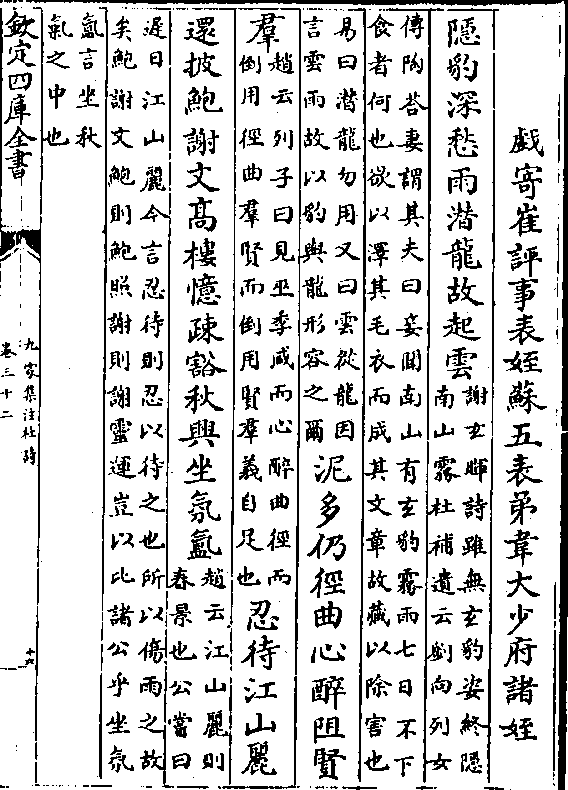 戯寄崔評事表姪蘇五表弟韋大少府諸姪
隠豹深愁雨潜龍故起雲
謝玄暉詩雖無玄豹姿終隠
南山霧杜補遺云劉向列女
傳陶荅妻謂其夫曰妾聞南山有玄豹霧雨七日不下
食者何也欲以澤其毛衣而成其文章故藏以除害也
易曰潜龍勿用又曰雲從龍因
言雲雨故以豹與龍形容之爾
泥多仍徑曲心醉阻賢
羣
趙云列子曰見巫季咸而心醉曲徑而
倒用徑曲羣賢而倒用賢羣義自足也
忍待江山麗
還披鮑謝文髙樓憶疎豁秋興坐氛氲
趙云江山麗則
春景也公嘗曰
遲日江山麗今言忍待則忍以待之也所以傷雨之故
矣鮑謝文鮑則鮑照謝則謝靈運豈以比諸公乎坐氛
氲言坐秋
氣之中也
欽定四庫全書
九家集注杜詩
卷三十二
十六